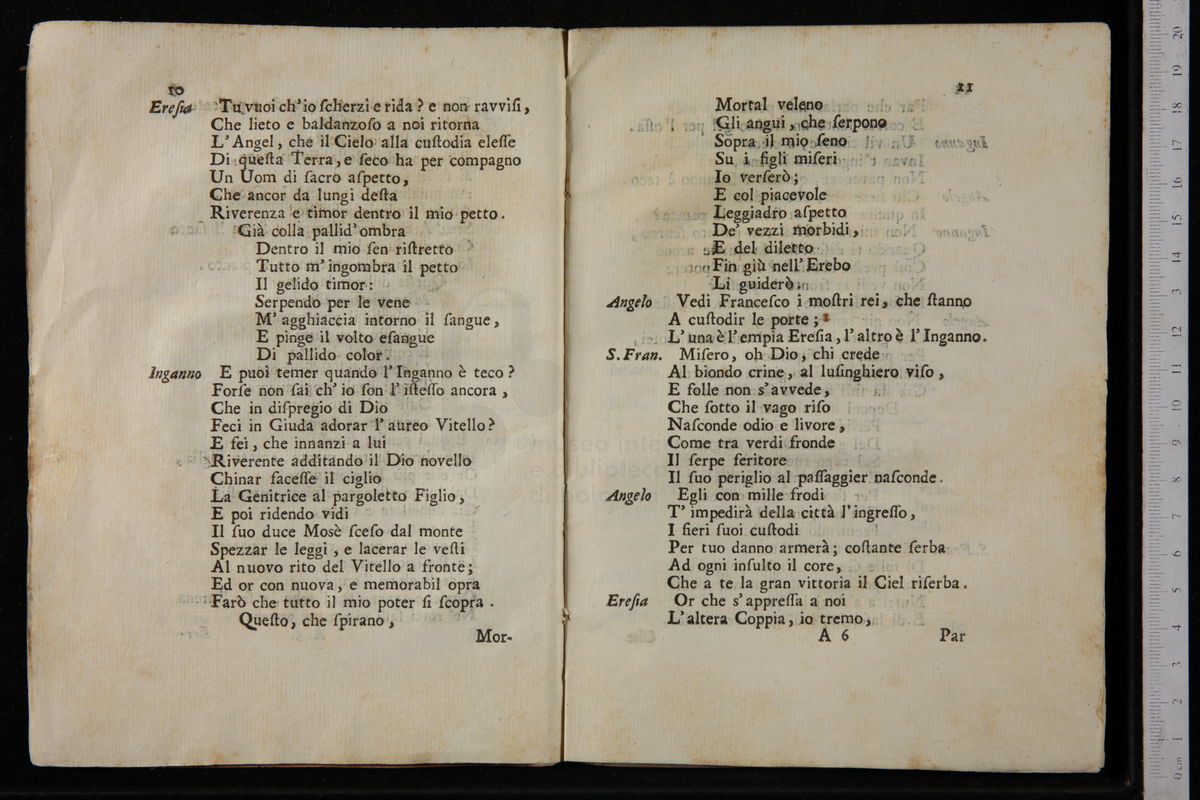 10
Ereſia Tu vuoi ch' io ſcherzi e rida ? e non ravviſi,
Che lieto e baldanzoſo a noi ritorna
L' Angel, che il Cielo alla cuſtodia eleſſe
Di queſta Terra, e ſeco ha per compagno
Un Uom di ſacro aſpetto,
Che ancor da lungi deſta
Riverenza e timor dentro il mio petto.
Già colla pallid' ombra
Dentro il mio ſen riſtretto
Tutto m' ingombra il petto
Il gelido timor:
Serpendo per le vene
M' agghiaccia intorno il ſangue,
E pinge il volto eſangue
Di pallido color.
Inganno E puoi temer quando l' Inganno è teco ?
Forſe non ſai ch' io ſon l' iſteſſo ancora,
Che in diſpregio di Dio
Feci in Giuda adorar l' aureo Vitello?
E fei, che innanzi a lui
Riverente additando il Dio novello
Chinar faceſſe il ciglio
La Genitrice al pargoletto Figlio,
E poi ridendo vidi
Il ſuo duce Mosè ſceſo dal monte
Spezzar le leggi , e lacerar le veſti
Al nuovo rito del Vitello a fronte;
Ed or con nuova, e memorabil opra
Farò che tutto il mio poter ſi ſcopra .
Queſto, che ſpirano,
Mor-
11
Mortal veleno
Gli angui, che ſerpono
Sopra il mio ſeno
Su i figli miſeri
Io verſerò;
E col piacevole
Leggiadro aſpetto
De' vezzi morbidi,
E del diletto
Fin giù nell' Erebo
Li guiderò.
Angelo Vedi Franceſco i moſtri rei, che ſtanno
A cuſtodir le porte ;
L' una è l' empia Ereſia, l' altro è l' Inganno.
S. Fran. Miſero, oh Dio, chi crede
Al biondo crine, al luſinghiero viſo ,
E folle non s' avvede,
Che ſotto il vago riſo
Naſconde odio e livore,
Come tra verdi fronde
Il ſerpe feritore
Il ſuo periglio al paſſaggier naſconde.
Angelo Egli con mille frodi
T' impedirà della città l' ingreſſo,
I fieri ſuoi cuſtodi
Per tuo danno armerà; coſtante ſerba
Ad ogni inſulto il core,
Che a te la gran vittoria il Ciel riſerba.
Ereſia Or che s' appreſſa a noi
L' altera Coppia, io tremo,
A 6 Par